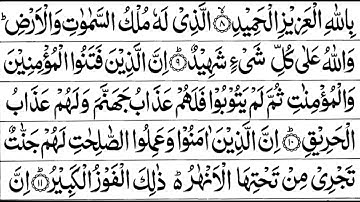 بِاللّٰهِ الْعَزِيْزِ الْحَمِيْدِ ۙ﴿۸﴾ الَّذِيْ لَهٗ مُلْكُ السَّمٰوٰتِ وَالْاَرْضِ ؕ
وَاللّٰهُ عَلٰى كُلِّ شَيْءٍ شَهِيْدٌ ؕ﴿۹﴾ اِنَّ الَّذِيْنَ فَتَنُوا الْمُؤْمِنِيْنَ
وَالْمُؤْمِنٰتِ ثُمَّ لَمْ يَتُوْبُوْا فَلَهُمْ عَذَابُ جَهَنَّمَ وَلَهُمْ عَذَابُ
الْحَرِيْقِ ؕ﴿۱۰﴾ اِنَّ الَّذِيْنَ اٰمَنُوْا وَعَمِلُوا الصّٰلِحٰتِ لَهُمْ جَنّٰتٌ
تَجْرِيْ مِنْ تَحْتِهَا الْاَنْهٰرُ ؕ ذٰلِكَ الْفَوْزُ الْكَبِيْرُ ؕ﴿۱۱﴾ اِنَّ